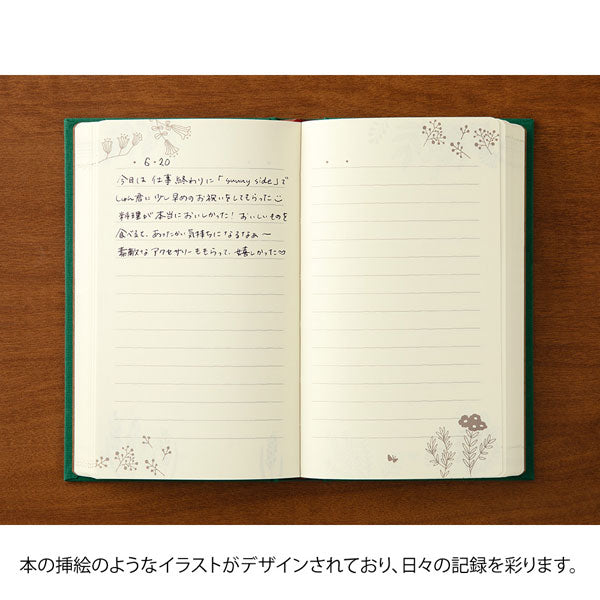 ・6・20
今日は仕事終わりに「sunny side」で
しゅん君に少し早めのお祝いをしてもらった
料理が本当においしかった！おいしいものを
食べると、あったかい気持ちになるなぁ〜
素敵なアクセサリーももらって、嬉しかった♡
本の挿絵のようなイラストがデザインされており、日々の記録を彩ります。